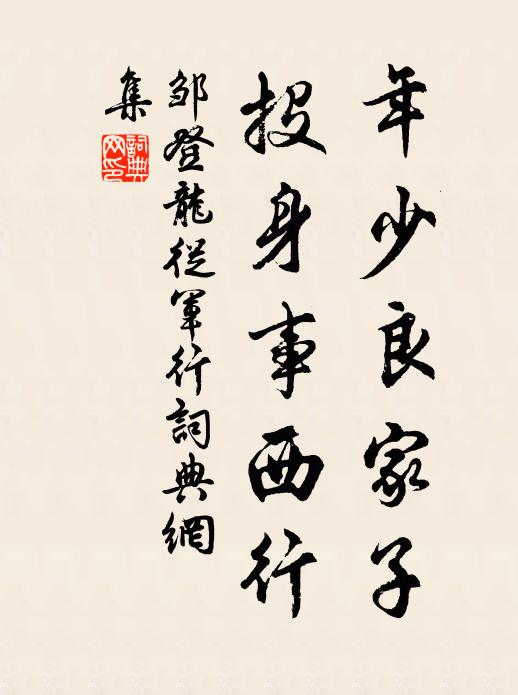 年少良家子
投身事西行
邹登龍從軍行詞典網
集
詞典
网印